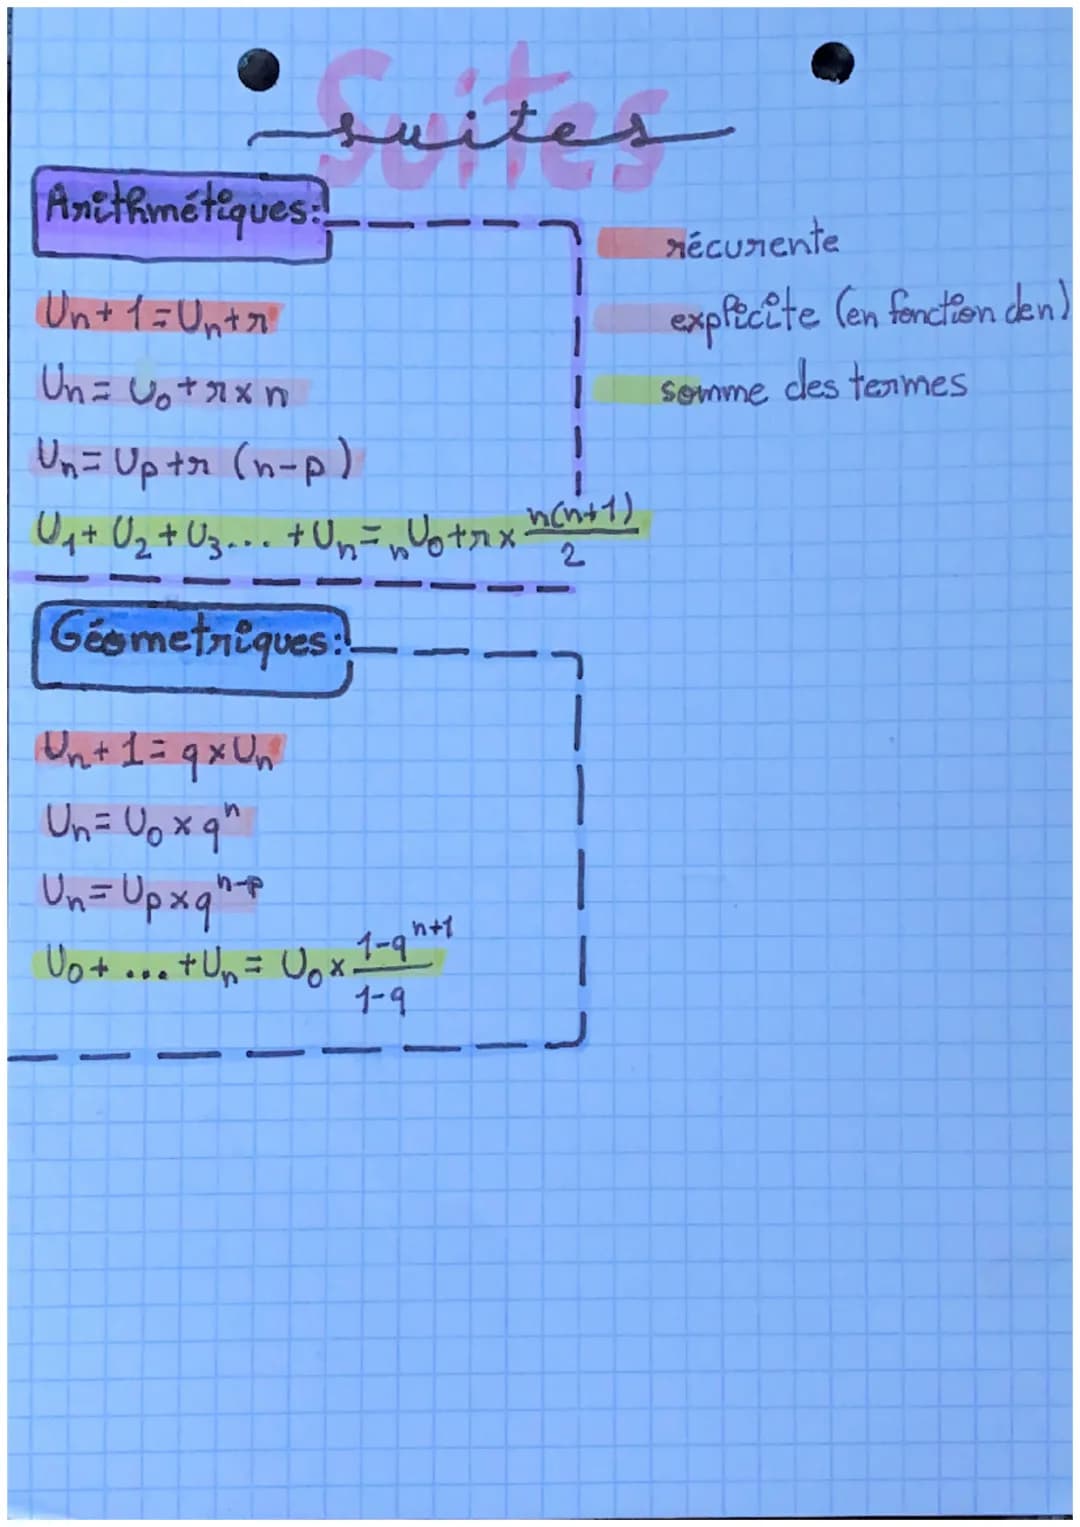 Suites
suites
Arithmétiques:
Un+1=Un+r
Un=U₀+r×n
Un=Up+r (n-p)
U₁+U₂+U₃... +Un=nU₀+r×n(n+1)/2
récurente
explicite (en fonction de n)
somme des termes
Géometriques:
Un+1=q×Un
Un=U₀×qⁿ
Un=Up×qⁿ⁻ᵖ
U₀+...+Un=U₀×1-qⁿ⁺¹/1-q